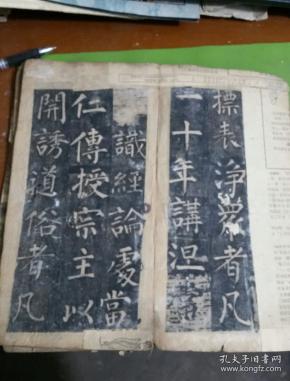 標表淨嚴者凡
一十年講涅
識經論處當
仁傳授宗主以
開誘道俗者凡
孔夫子旧书网